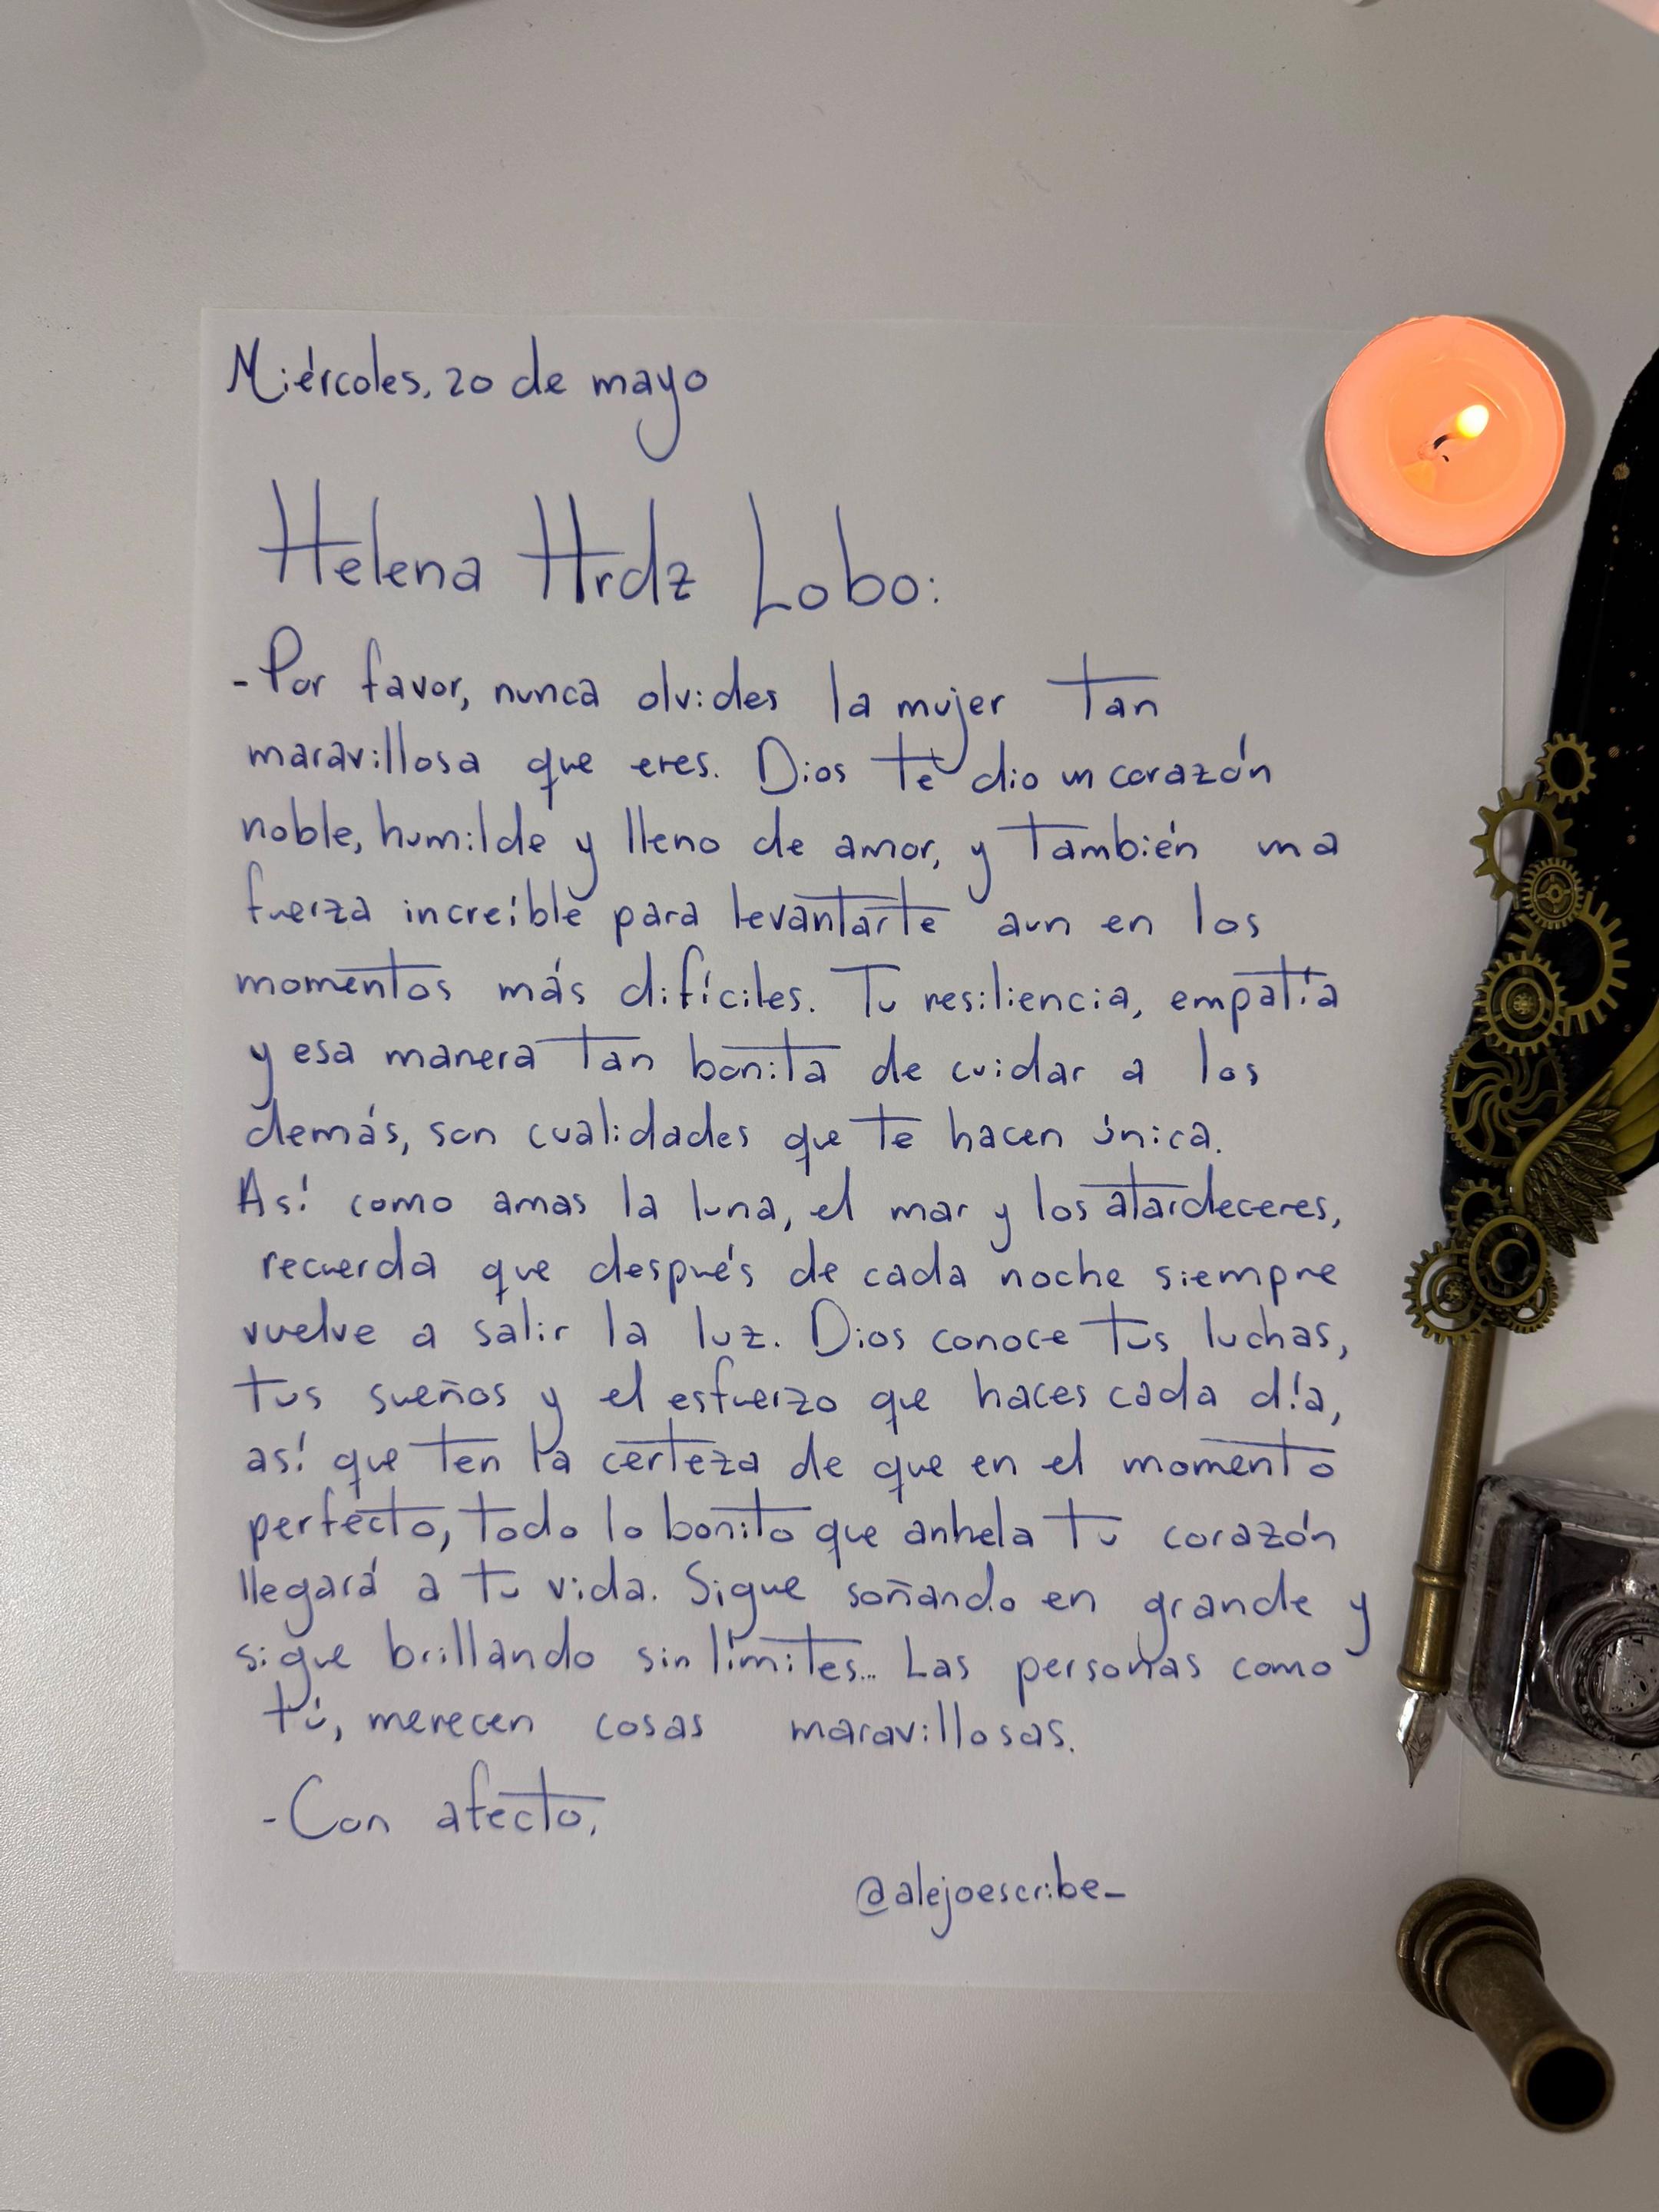 Miércoles, 20 de mayo
Helena Hrdz Lobo:
-Por favor, nunca olvides la mujer tan
maravillosa que eres. Dios te dio un corazón
noble, humilde y lleno de amor, y también una
fuerza increíble para levantarte aun en los
momentos más difíciles. Tu resiliencia, empatía
y esa manera tan bonita de cuidar a los
demás, son cualidades que te hacen única.
Así como amas la luna, el mar y los atardeceres,
recuerda que después de cada noche siempre
vuelve a salir la luz. Dios conoce tus luchas,
tus sueños y el esfuerzo que haces cada día,
así que ten la certeza de que en el momento
perfecto, todo lo bonito que anhela tu corazón
llegará a tu vida. Sigue soñando en grande y
sigue brillando sin límites... Las personas como
tú, merecen cosas maravillosas.
-Con afecto,
@alejoescribe_